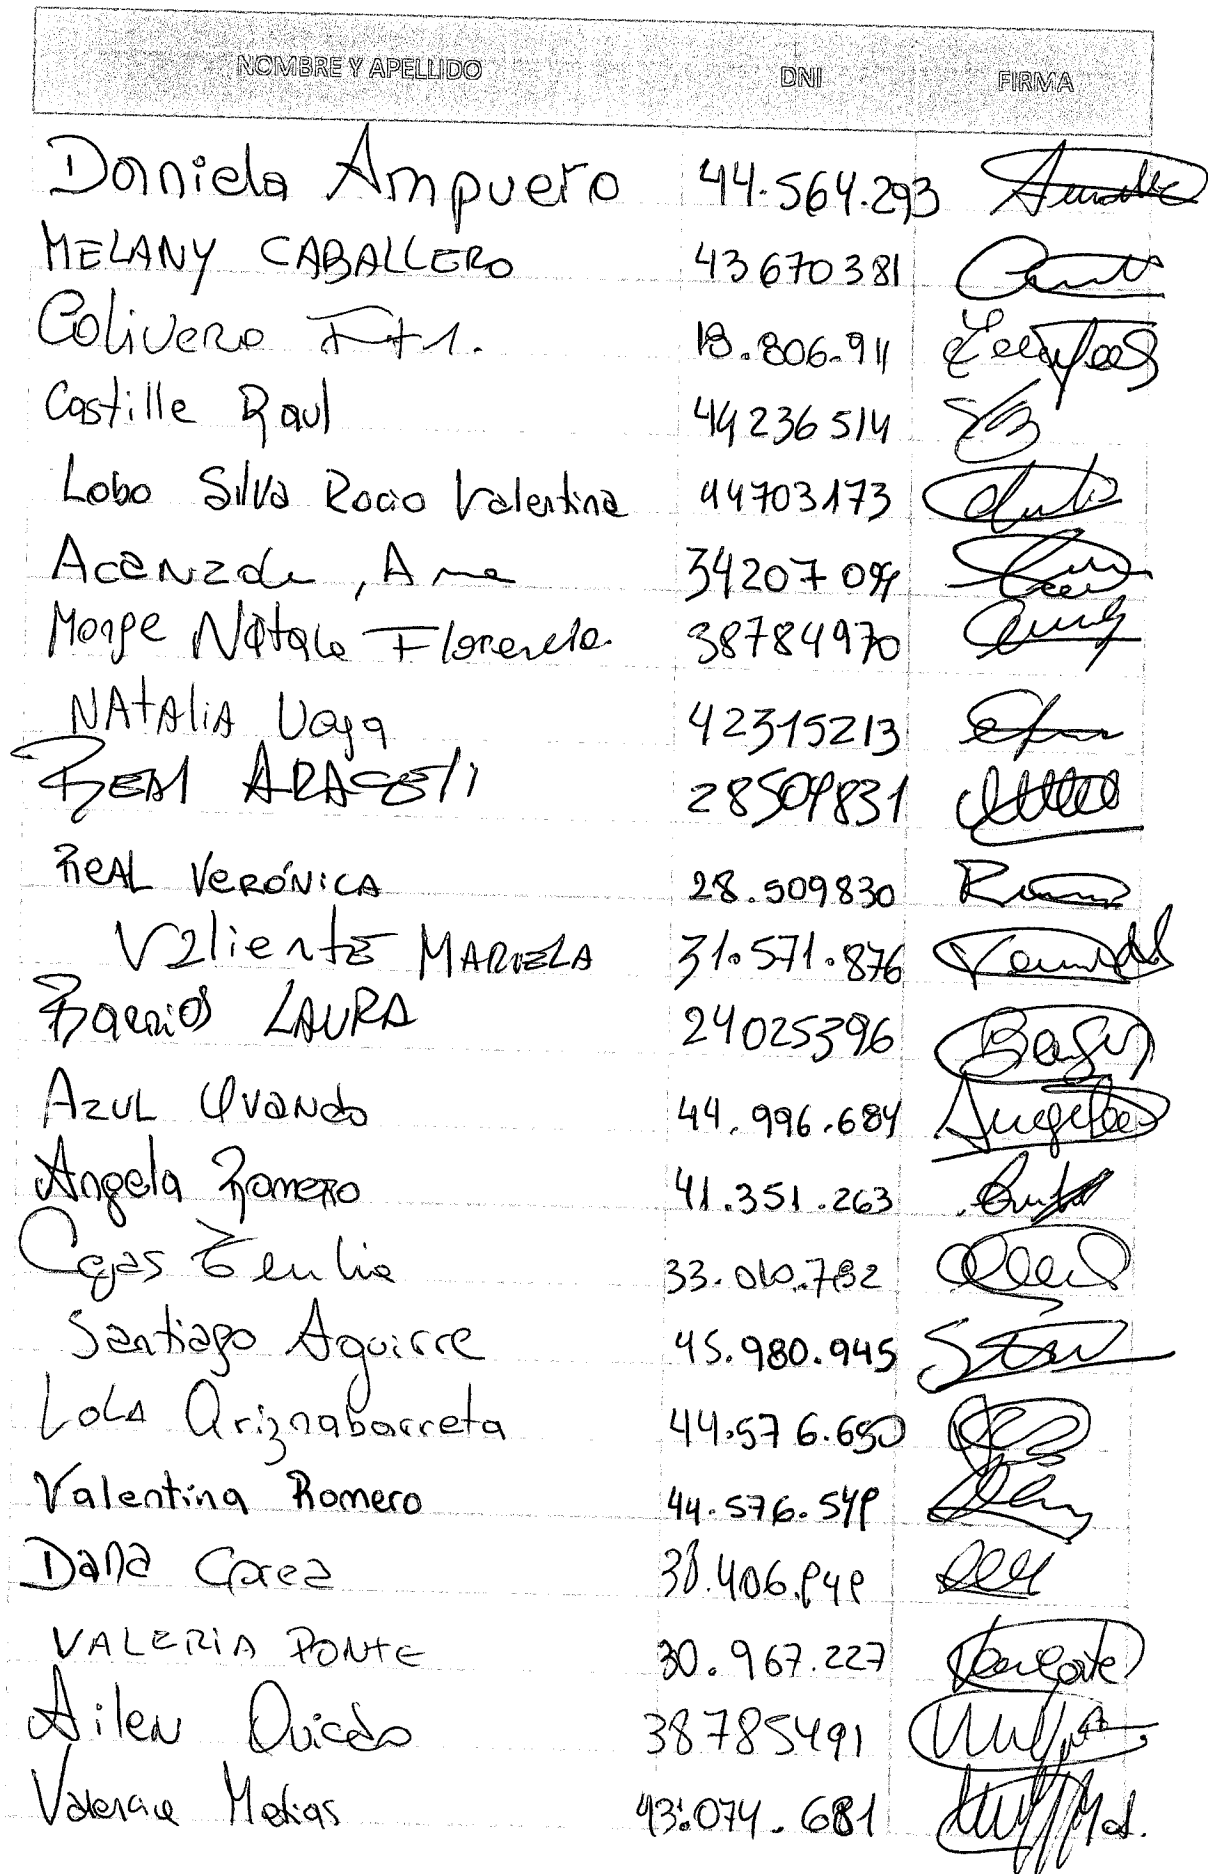 NOMBRE Y APELLIDO DNI FIRMA
Daniela Ampuero 44.564.293
MELANY CABALLERO 43670381
Colivero 18.806.911
Castille Raul 44236514
Lobo Silva Rocio Valentina 44703173
Ana 34207094
Monge Natale Florencia. 38784970
NAtAliA 42315213
REAl ARACEli 28509831
ReAL VERÓNICA 28.509830
Valiente MARIELA 31.571.876
Barrios LAURA 24025396
AZUL OvANdo 44.996.684
Angela Romero 41.351.263
Cejas 33.010.782
Santiago Aguirre 45.980.945
LoLA Ariznabarreta 44.576.650
Valentina Romero 44.576.549
Dana
VALERIA PONTE 30.967.227
Ailen Oviedo 38785491
Matias 43.074.681